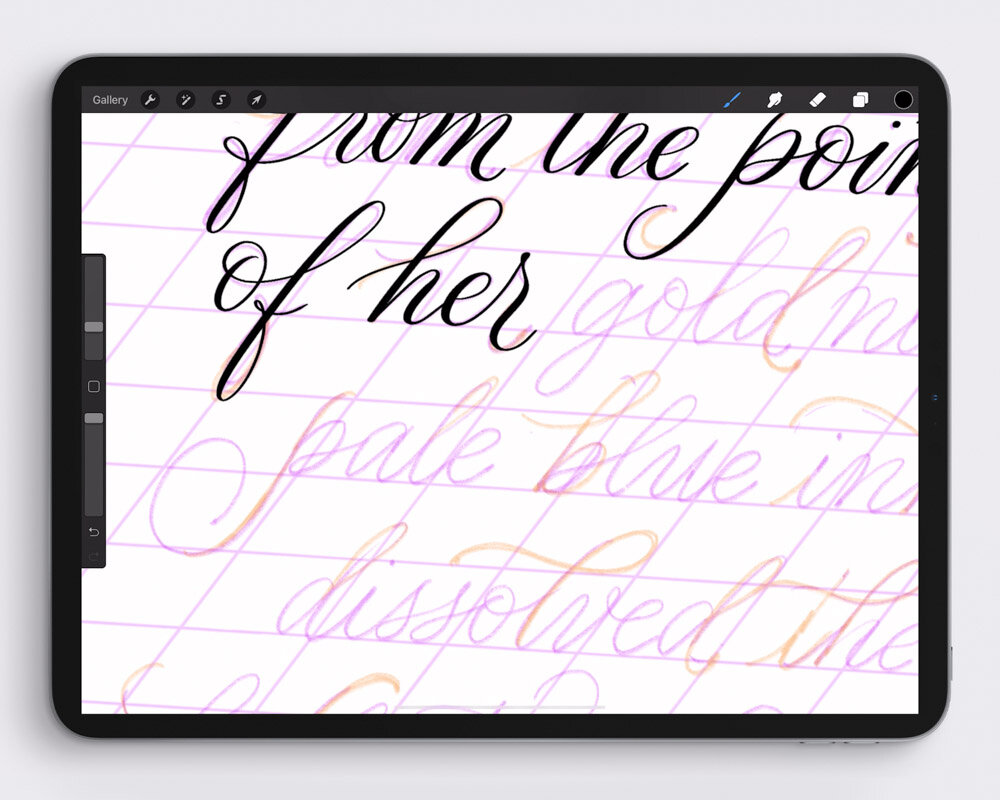 Gallery
from the poin
of her gold ni
pale blue in
dissolved the